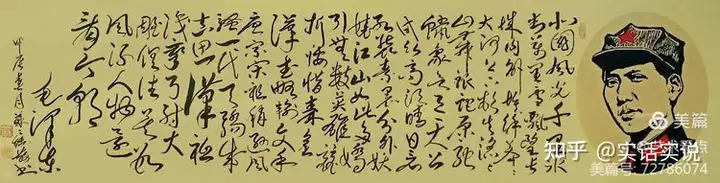 北国风光千里冰
封万里雪飘望长
城内外惟余莽莽
大河上下顿失滔滔
山舞银蛇原驰
象欲与天公
试比高须晴日看
红装素裹分外妖
娆江山如此多娇
引无数英雄竞
折腰惜秦皇
汉武略输文采
唐宗宋祖稍逊风
骚一代天骄成
吉思汗祇
识弯弓射大
雕俱往矣数
风流人物还
看今朝
毛泽东
美篇
知乎 @实话实说
美篇号 72786074